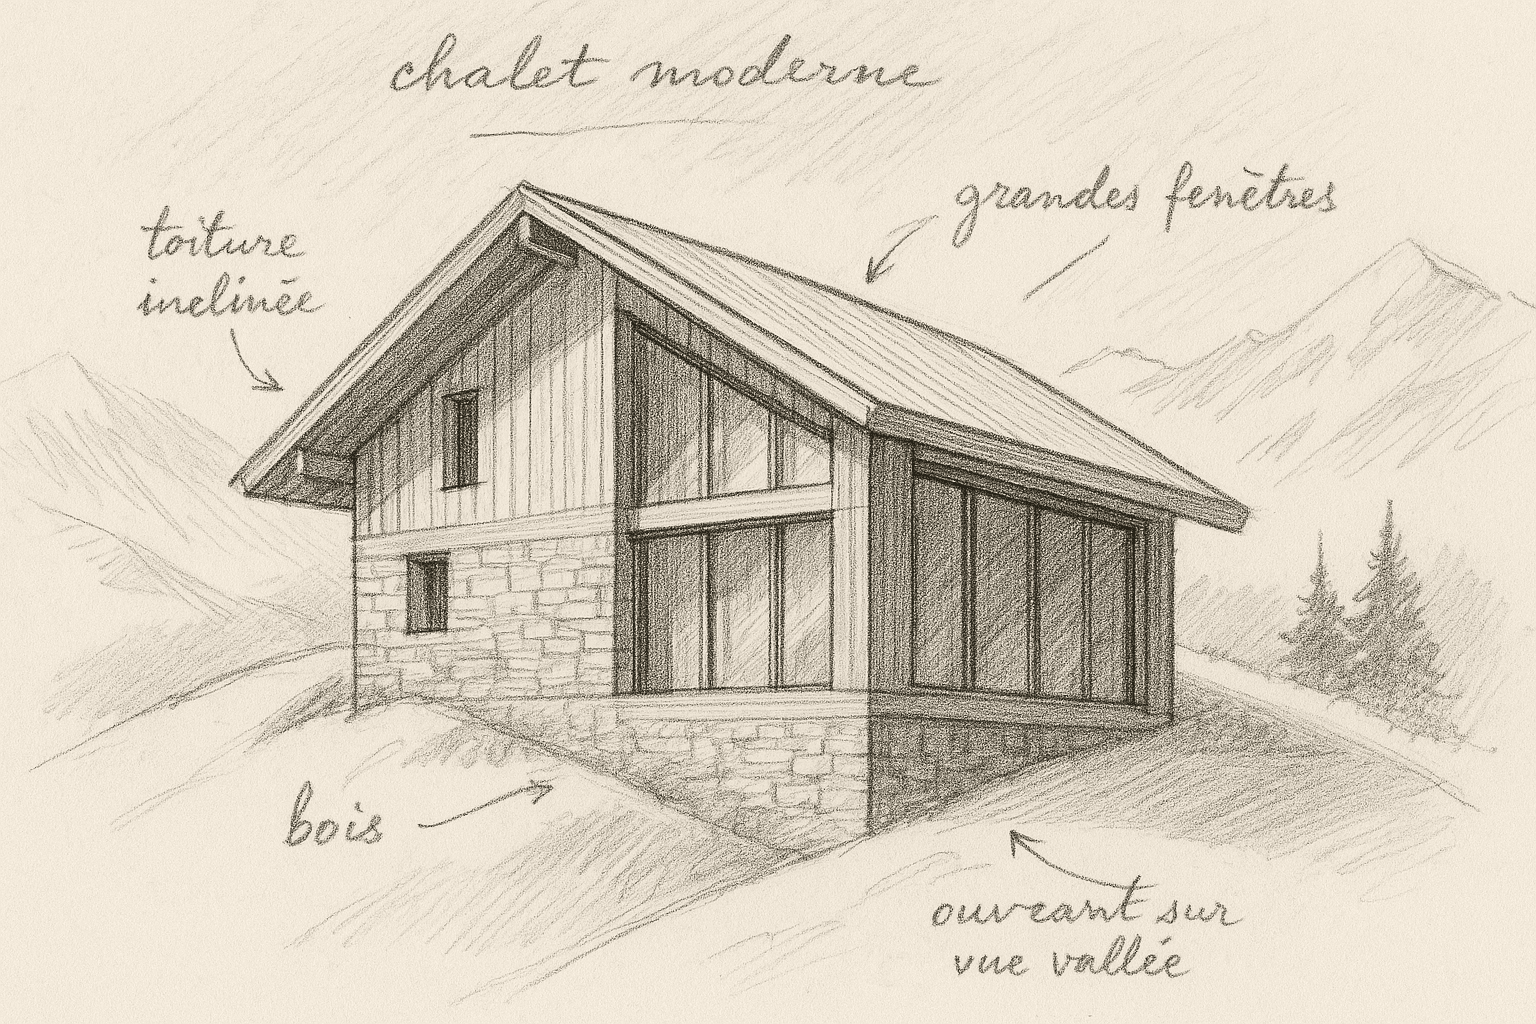 chalet moderne
grandes fenêtres
toiture
inclinée
bois
ouveant sur
vue vallée